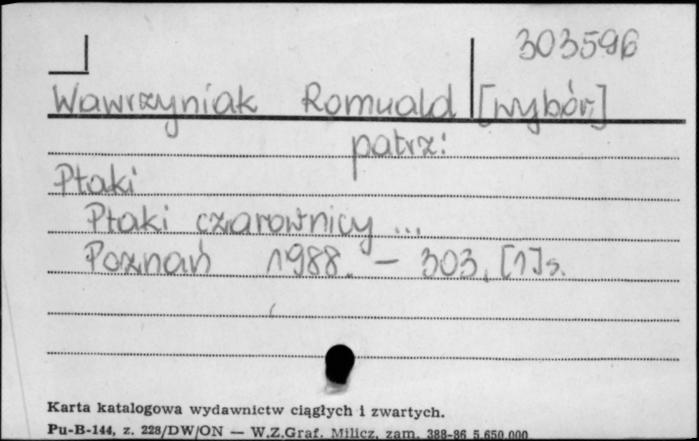 303596
Wawrzyniak Romuald [wybór.]
patrz:
Ptaki
Ptaki czarownicy ...
Poznań 1988. – 303, [1] s.
Karta katalogowa wydawnictw ciągłych i zwartych.
Pu-B-144, z. 228/DW/ON — W.Z.Graf. Milicz, zam. 388-86 5.650.000